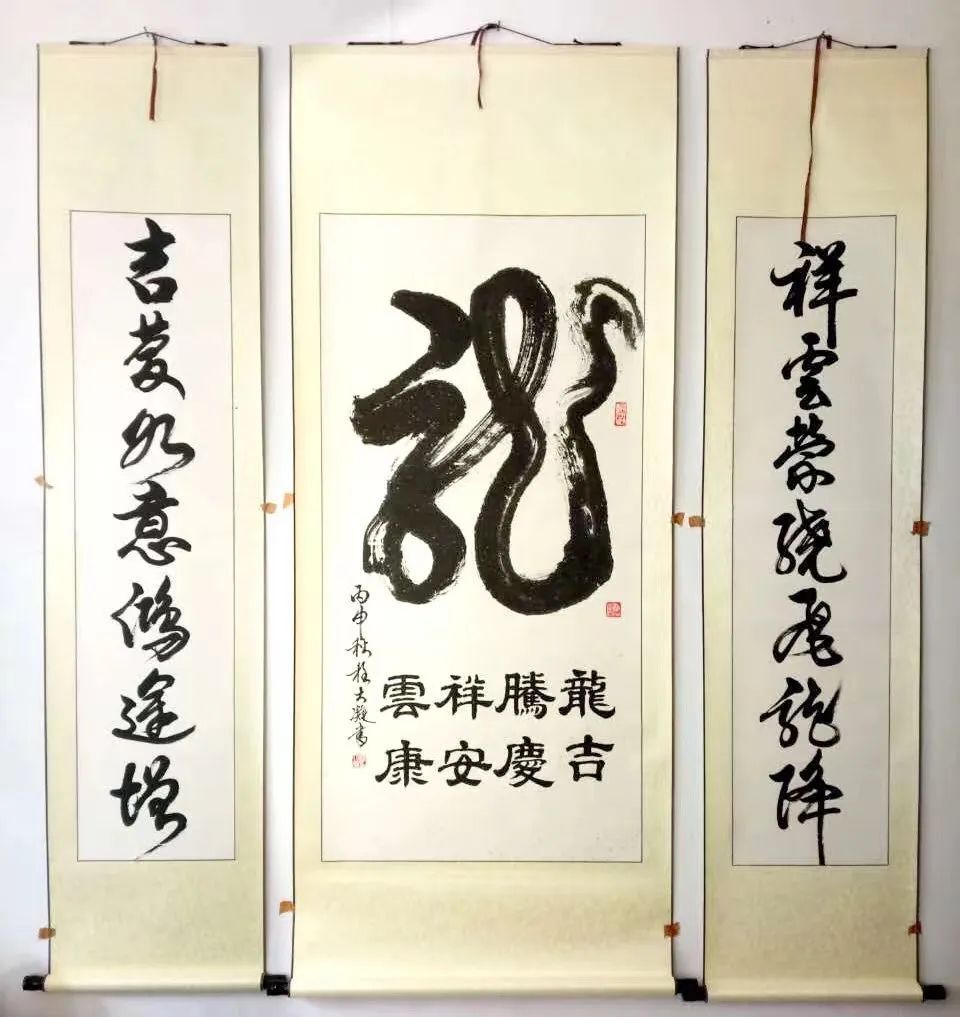 祥雲縈繞飛龍降
龍
龍騰祥雲
吉慶安康
丙申秋 大凝書
吉慶如意鴻途增